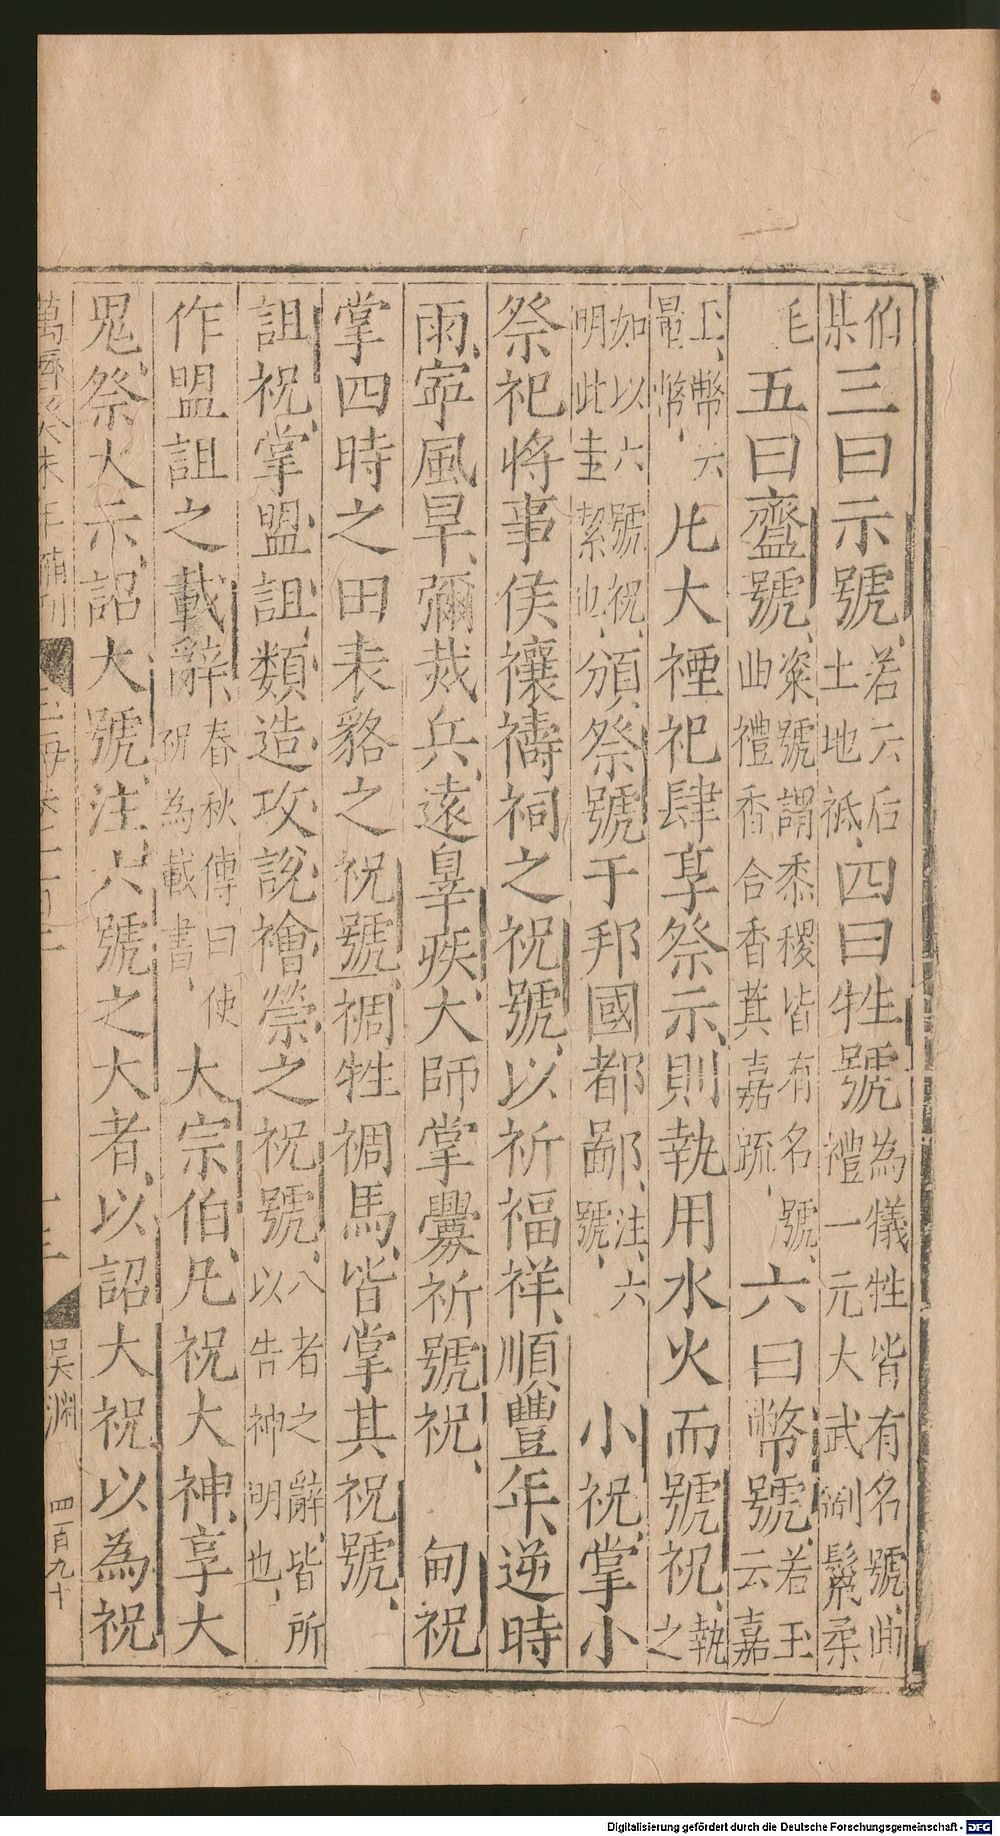 伯某三曰示號、若云后土地祇、四曰牲號為犧牲皆有名號、曲禮一元大武剛鬣柔
毛五曰齍號、粢號謂黍稷皆有名號、曲禮香合香萁嘉疏、六曰幣號、若玉云嘉
玉、幣云量幣、凡大禋祀肆享祭示、則執用水火而號祝、執之
如以六號祝、明此圭絜也、頒祭號于邦國都鄙、注、六號、小祝、掌小
祭祀將事侯禳禱祠之祝號、以祈福祥、順豐年、逆時
雨、寧風旱、彌烖兵、遠辠疾、大師掌釁祈號祝、甸祝
掌四時之田表貉之祝號、禂牲禂馬、皆掌其祝號、
詛祝、掌盟詛、類造、攻說、禬禜、之祝號、八者之辭、皆所以告神明也、
作盟詛之載辭、春秋傳曰使祝為載書、大宗伯、凡祀大神、享大
鬼、祭大示、詔大號、注、六號之大者、以詔大祝以為祝
萬曆癸未年補刊
十三
吳淵
四百九十
Digitalisierung gefördert durch die Deutsche Forschungsgemeinschaft - DFG